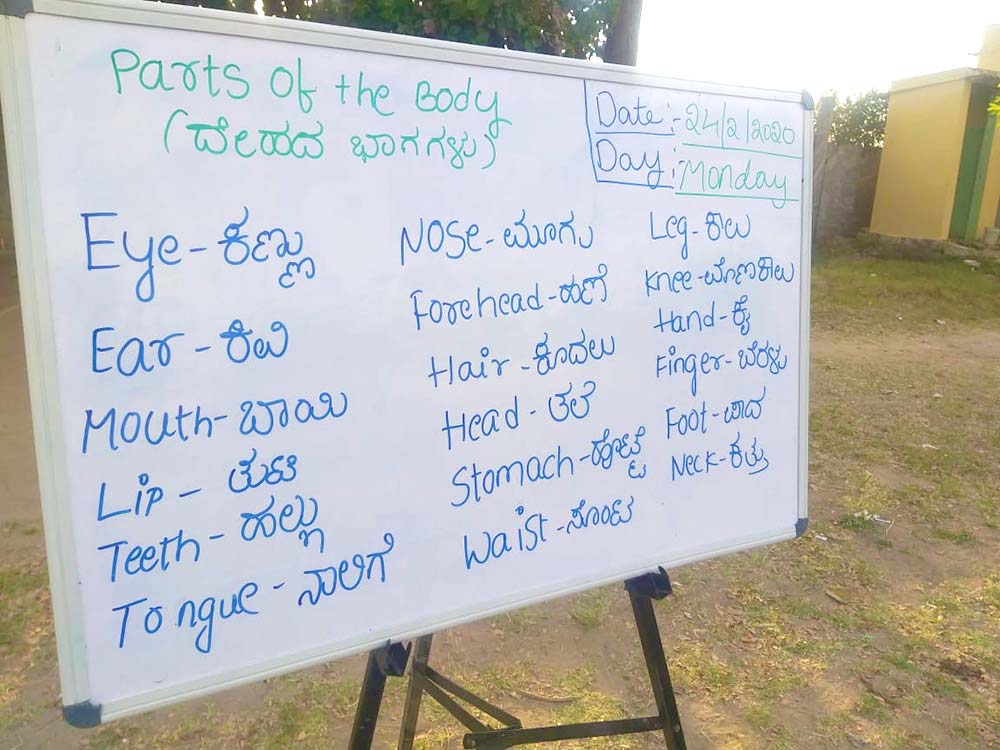 Parts of the Body
(ದೇಹದ ಭಾಗಗಳು)
Date:- 24/2/2020
Day:- Monday
Eye - ಕಣ್ಣು
Ear - ಕಿವಿ
Mouth - ಬಾಯಿ
Lip - ತುಟಿ
Teeth - ಹಲ್ಲು
Tongue - ನಾಲಿಗೆ
Nose - ಮೂಗು
Forehead - ಹಣೆ
Hair - ಕೂದಲು
Head - ತಲೆ
Stomach - ಹೊಟ್ಟೆ
Waist - ಸೊಂಟ
Leg - ಕಾಲು
Knee - ಮೊಣಕಾಲು
Hand - ಕೈ
Finger - ಬೆರಳು
Foot - ಪಾದ
Neck - ಕತ್ತು